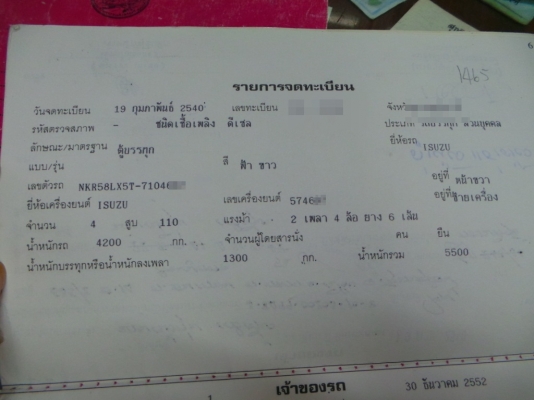 1465
รายการจดทะเบียน
วันจดทะเบียน 19 กุมภาพันธ์ 2540 เลขทะเบียน จังหวัด
รหัสตรวจสภาพ - ชนิดเชื้อเพลิง ดีเซล ประเภท ส่วนบุคคล
ลักษณะ/มาตรฐาน ตู้บรรทุก ยี่ห้อรถ ISUZU
แบบ/รุ่น สี ฟ้า ขาว
เลขตัวรถ NKR58LX5T-71046 อยู่ที่
ยี่ห้อเครื่องยนต์ ISUZU เลขเครื่องยนต์ 5746 อยู่ที่ ซ้ายเครื่อง
จำนวน 4 สูบ 110 แรงม้า 2 เพลา 4 ล้อ ยาง 6 เส้น
น้ำหนักรถ 4200 กก. จำนวนผู้โดยสารนั่ง คน ยืน
น้ำหนักบรรทุกหรือน้ำหนักลงเพลา 1300 กก. น้ำหนักรวม 5500
เจ้าของรถ 30 ธันวาคม 2552